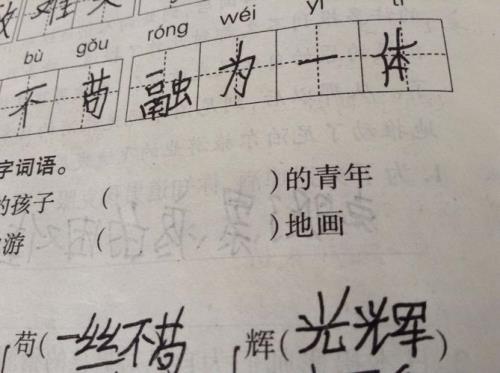 bù gǒu róng wéi yī tǐ
不苟 融为一体
字词语。
的孩子 ( )的青年
游 ( )地画
苟(一丝不苟 辉(光辉)